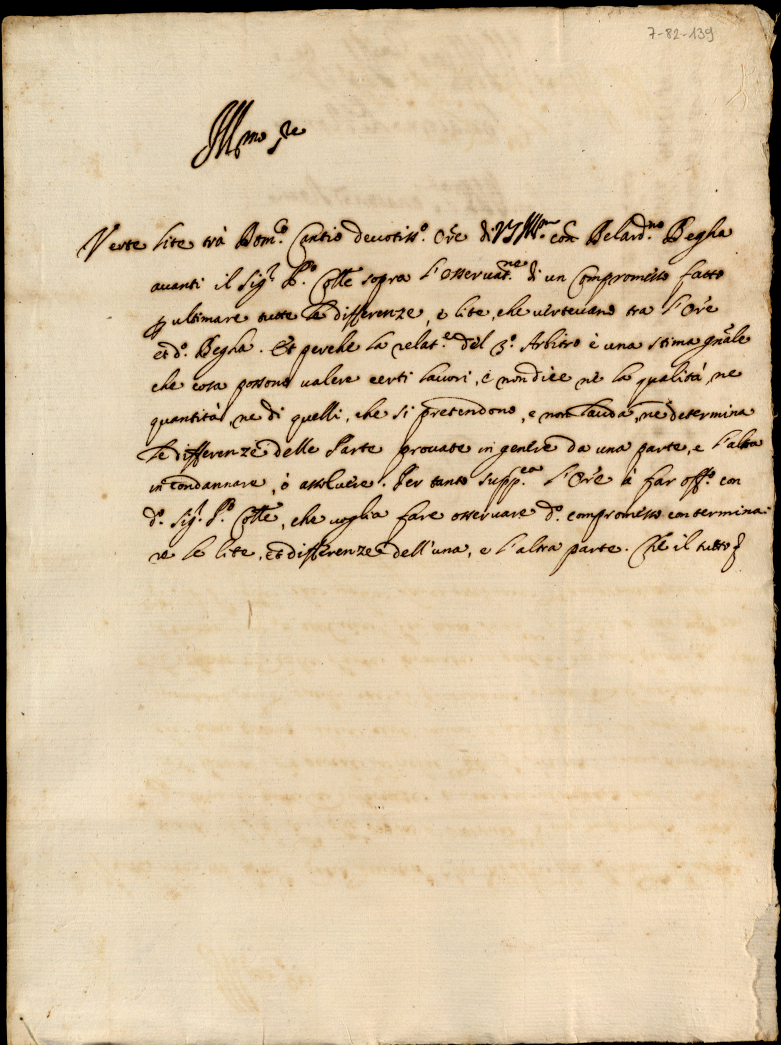 7-82-139
Ill.mo Sre
Verte lite trà Dom.co Cantio devotiss.o Ore di VS Ill.ma con Belard.no Begha
avanti il Sig.r P.o Colle sopra l'osservat.ne di un Compromesso fatto
p ultimare tutte le differenze, e lite, che vertevano tra l'Ore
et d.o Begha. Et perche la relat.e del 3.o Arbitro è una stima gnale
che cosa possono valere certi lavori, e non dice nè la qualità, ne
quantità, ne di quelli, che si pretendono, e non lauda, ne determina
le differenze delle Parte provate in genere da una parte, e l'altra
in condannare, ò assolvere. Per tanto supp.ca l'Ore à far off.o con
d.o Sig.r P.o Colle, che voglia fare osservare d.o compromesso con termina-
re le lite, et differenze dell'una, e l'altra parte. Che il tutto